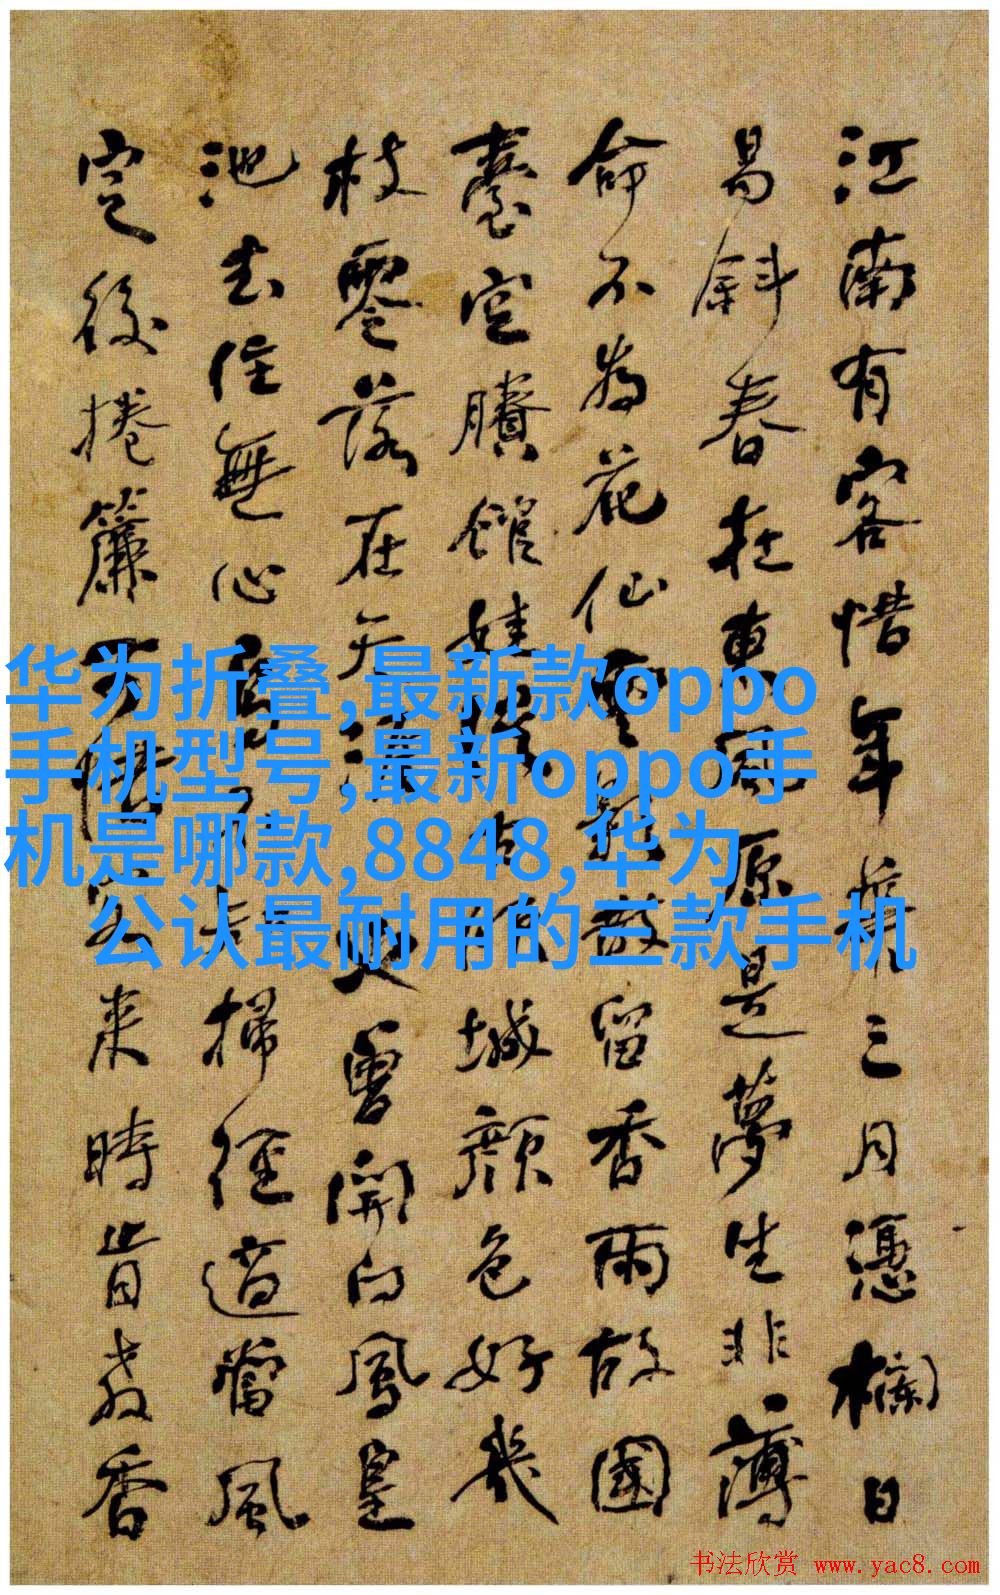 江南有客惜年華三月憑欄日
易斜春在東風原是夢生非薄
命不為花仙雲散留香雨故國
臺空賸館娃從古傾城顏色好幾
枝零落在天涯曾開向鳳皇
池去住無心掃徑適當風
定後捲簾可惜客來時肯教香
华为折叠,最新款oppo
手机型号,最新oppo手
机是哪款,8848,华为
公认最耐用的三款手机
书法欣赏 www.yac8.com